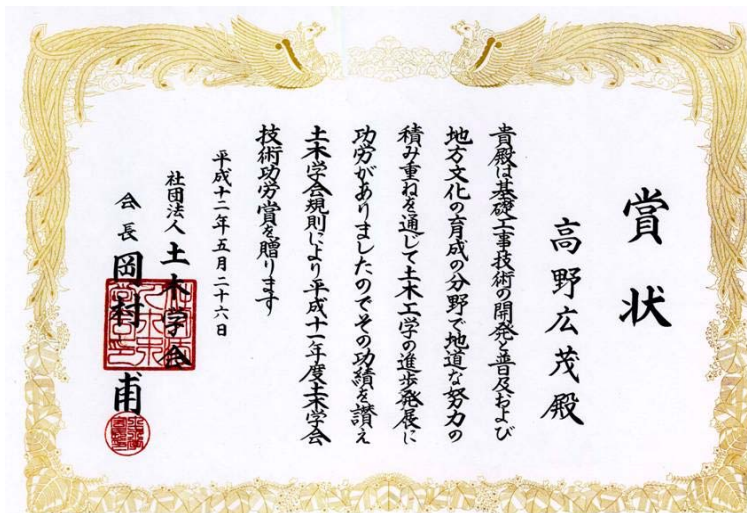 賞状
高野広茂殿
貴殿は基礎工事技術の開発と普及および
地方文化の育成の分野で地道な努力の
積み重ねを通じて土木工学の進歩発展に
功労がありましたのでその功績を讃え
土木学会規則により平成十一年度土木学会
技術功労賞を贈ります
平成十二年五月二十六日
社団法人土木学会
会長岡村甫